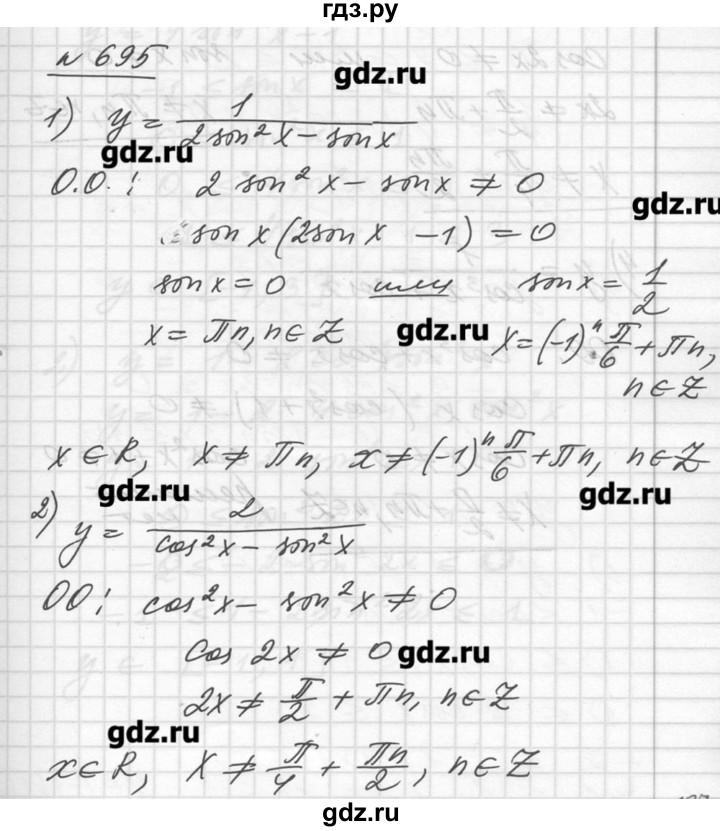 гдз.ру
№ 695
gdz.ru
1) y = 1 / (2 sin²x − sin x)
gdz.ru
О.О.: 2 sin² x − sin x ≠ 0
gdz.ru
sin x (2 sin x − 1) = 0
sin x = 0 или sin x = 1/2
x = πn, n ∈ Z
gdz.ru
x = (−1)ⁿ π/6 + πn,
n ∈ Z
x ∈ R, x ≠ πn, x ≠ (−1)ⁿ π/6 + πn, n ∈ Z
gdz.ru
gdz.ru
2) y = 2 / (cos²x − sin²x)
ОО: cos²x − sin²x ≠ 0
cos 2x ≠ 0
gdz.ru
2x ≠ π/2 + πn, n ∈ Z
gdz.ru
x ∈ R, x ≠ π/4 + πn/2, n ∈ Z
gdz.ru